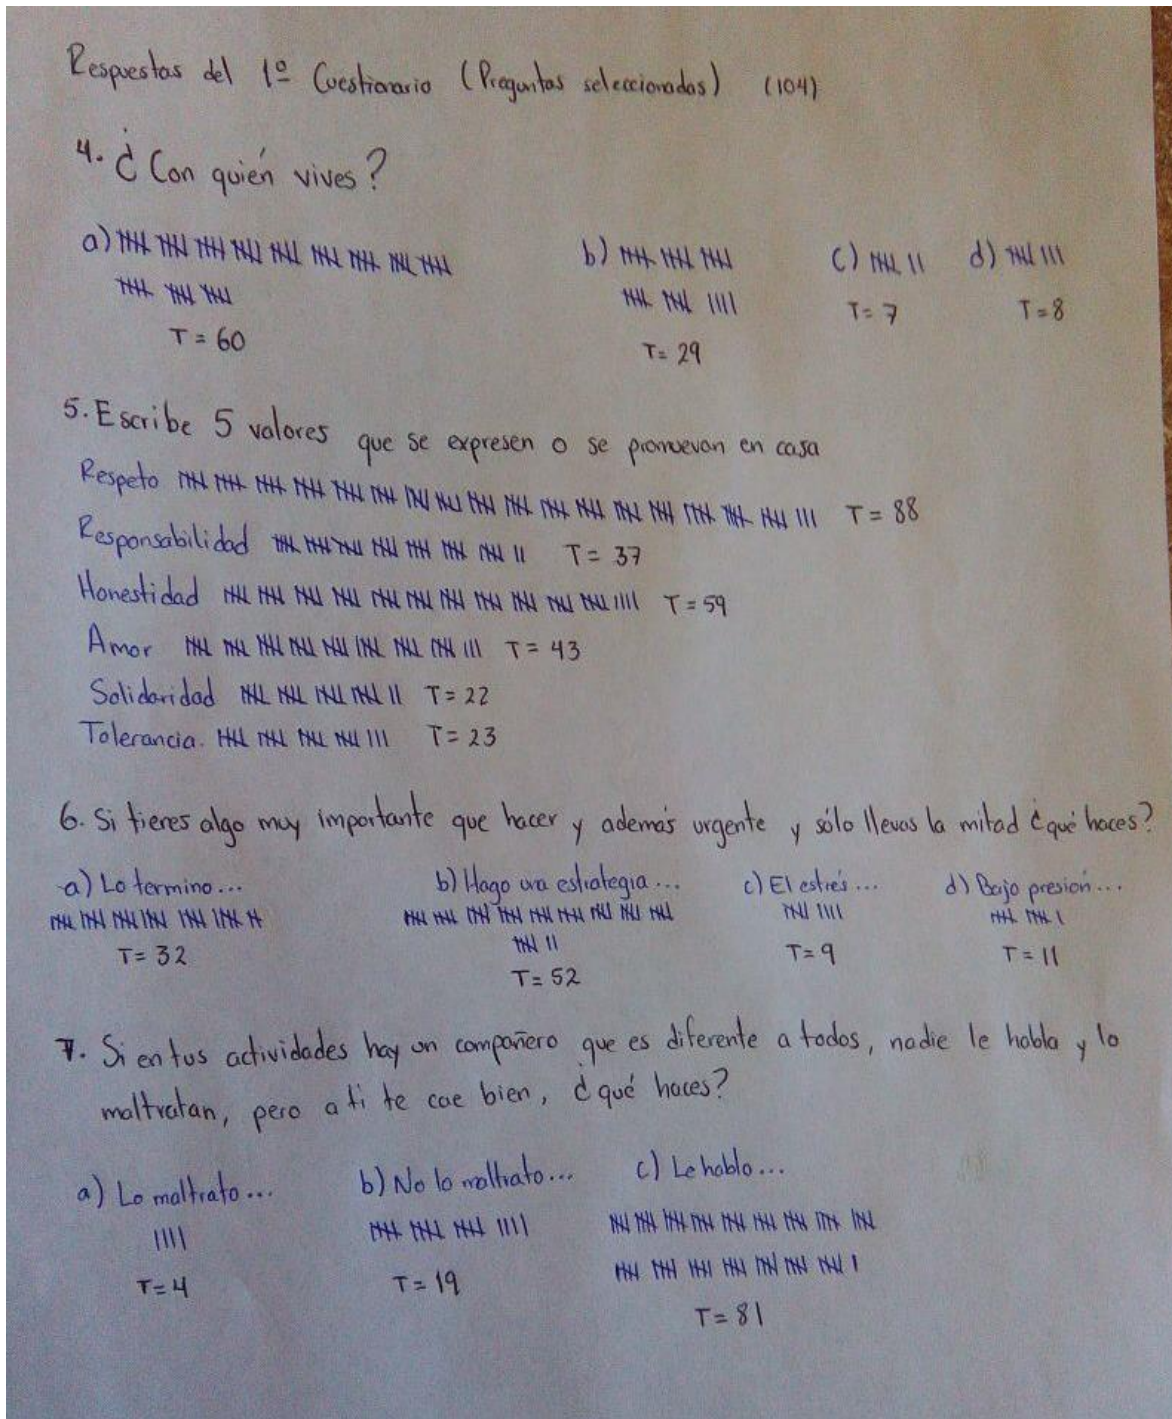 Respuestas del 1º Cuestionario (Preguntas seleccionadas) (104)
4. ¿Con quién vives?
a) b) c) d)
T = 60 T = 29 T = 7 T = 8
5. Escribe 5 valores que se expresen o se promuevan en casa
Respeto T = 88
Responsabilidad T = 37
Honestidad T = 59
Amor T = 43
Solidaridad T = 22
Tolerancia. T = 23
6. Si tienes algo muy importante que hacer y además urgente y sólo llevas la mitad ¿qué haces?
a) Lo termino... b) Hago una estrategia... c) El estrés... d) Bajo presión...
T = 32 T = 52 T = 9 T = 11
7. Si en tus actividades hay un compañero que es diferente a todos, nadie le habla y lo
maltratan, pero a ti te cae bien, ¿qué haces?
a) Lo maltrato... b) No lo maltrato... c) Le hablo...
T = 4 T = 19 T = 81